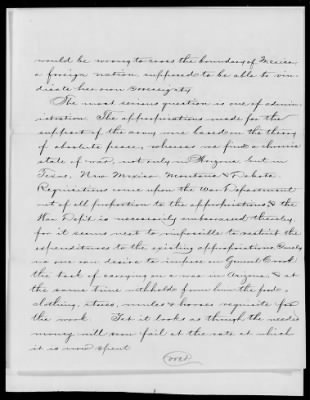 would be wrong to cross the boundary of Mexico,
a foreign nation supposed to be able to vin-
dicate her own sovereignty.
The most serious question is one of admin-
istration. The appropriations made for the
support of the army were based on the theory
of absolute peace, whereas we find a chronic
state of war, not only in Arizona but in
Texas, New Mexico, Montana & Dakota.
Requisitions come upon the War Department
out of all proportion to the appropriations, & the
War Dep't is necessarily embarrassed thereby,
for it seems next to impossible to restrict the
expenditures to the existing appropriations. Surely
no one can desire to impose on General Crook
the task of carrying on a war in Arizona, & at
the same time withhold from him the food,
clothing, stores, mules & horses requisite for
the work. Yet it looks as though the needed
money will soon fail at the rate at which
it is now spent.
(over)